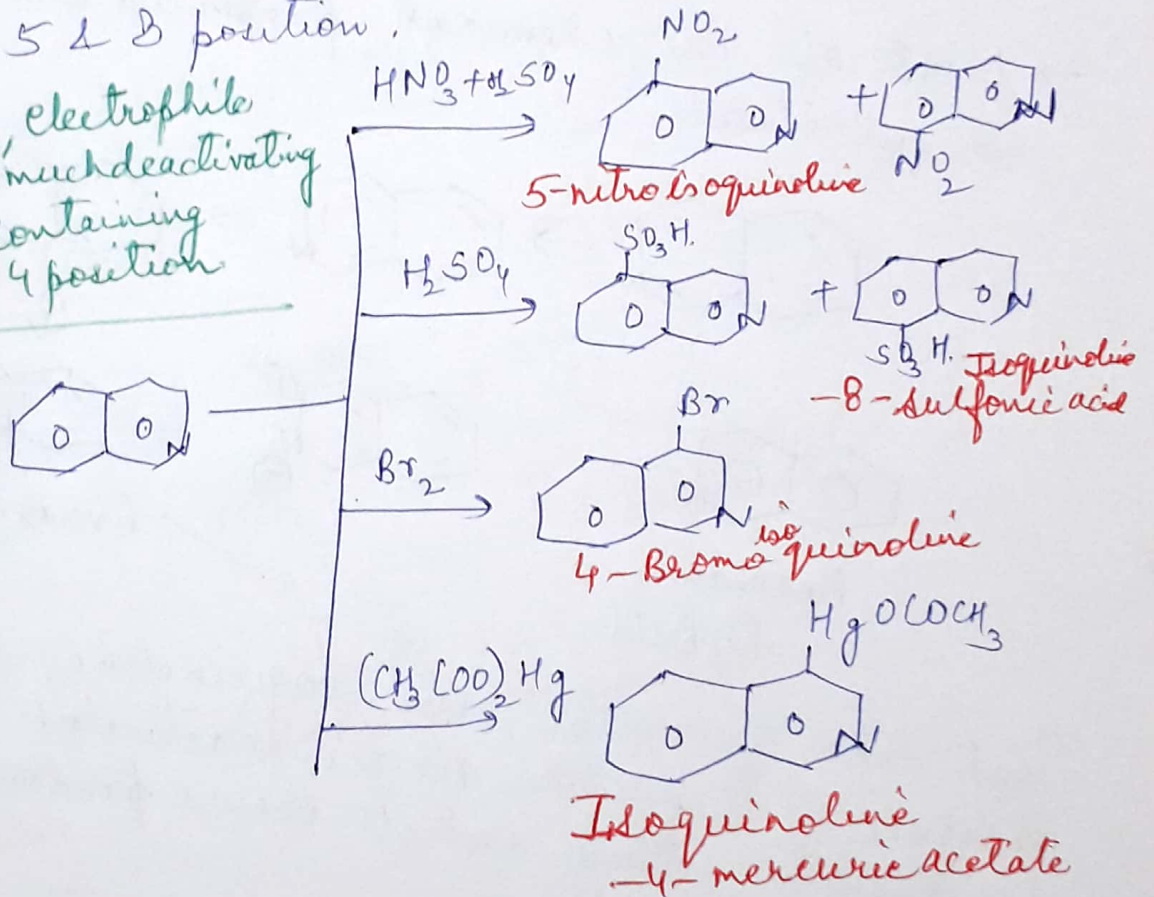 5 & 8 position.
electrophile
much deactivating
ontaining
4 position
HNO3 + H2SO4
NO2
N
5-nitro isoquinoline
+
N
NO2
H2SO4
SO3H.
N
+
N
SO3H.
Isoquinoline
-8-sulfonic acid
N
Br2
Br
N
4-Bromo iso quinoline
(CH3COO)2Hg
HgOCOCH3
N
Isoquinoline
-4-mercuric acetate